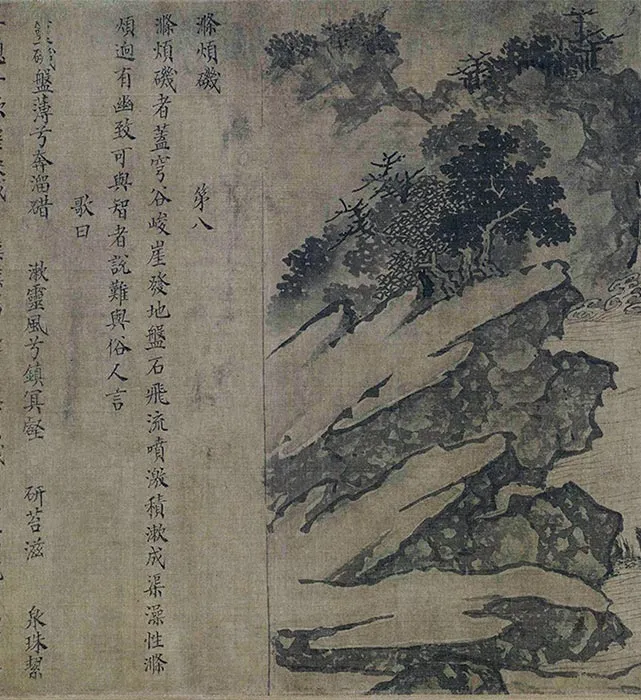 滌煩磯　第八
滌煩磯者蓋穹谷峻崖發地盤石飛流噴激積漱成渠澡性滌
煩迥有幽致可與智者說難與俗人言
歌曰
磯盤薄兮奔溜錯　漱靈風兮鎮冥壑　研苔滋　泉珠絜